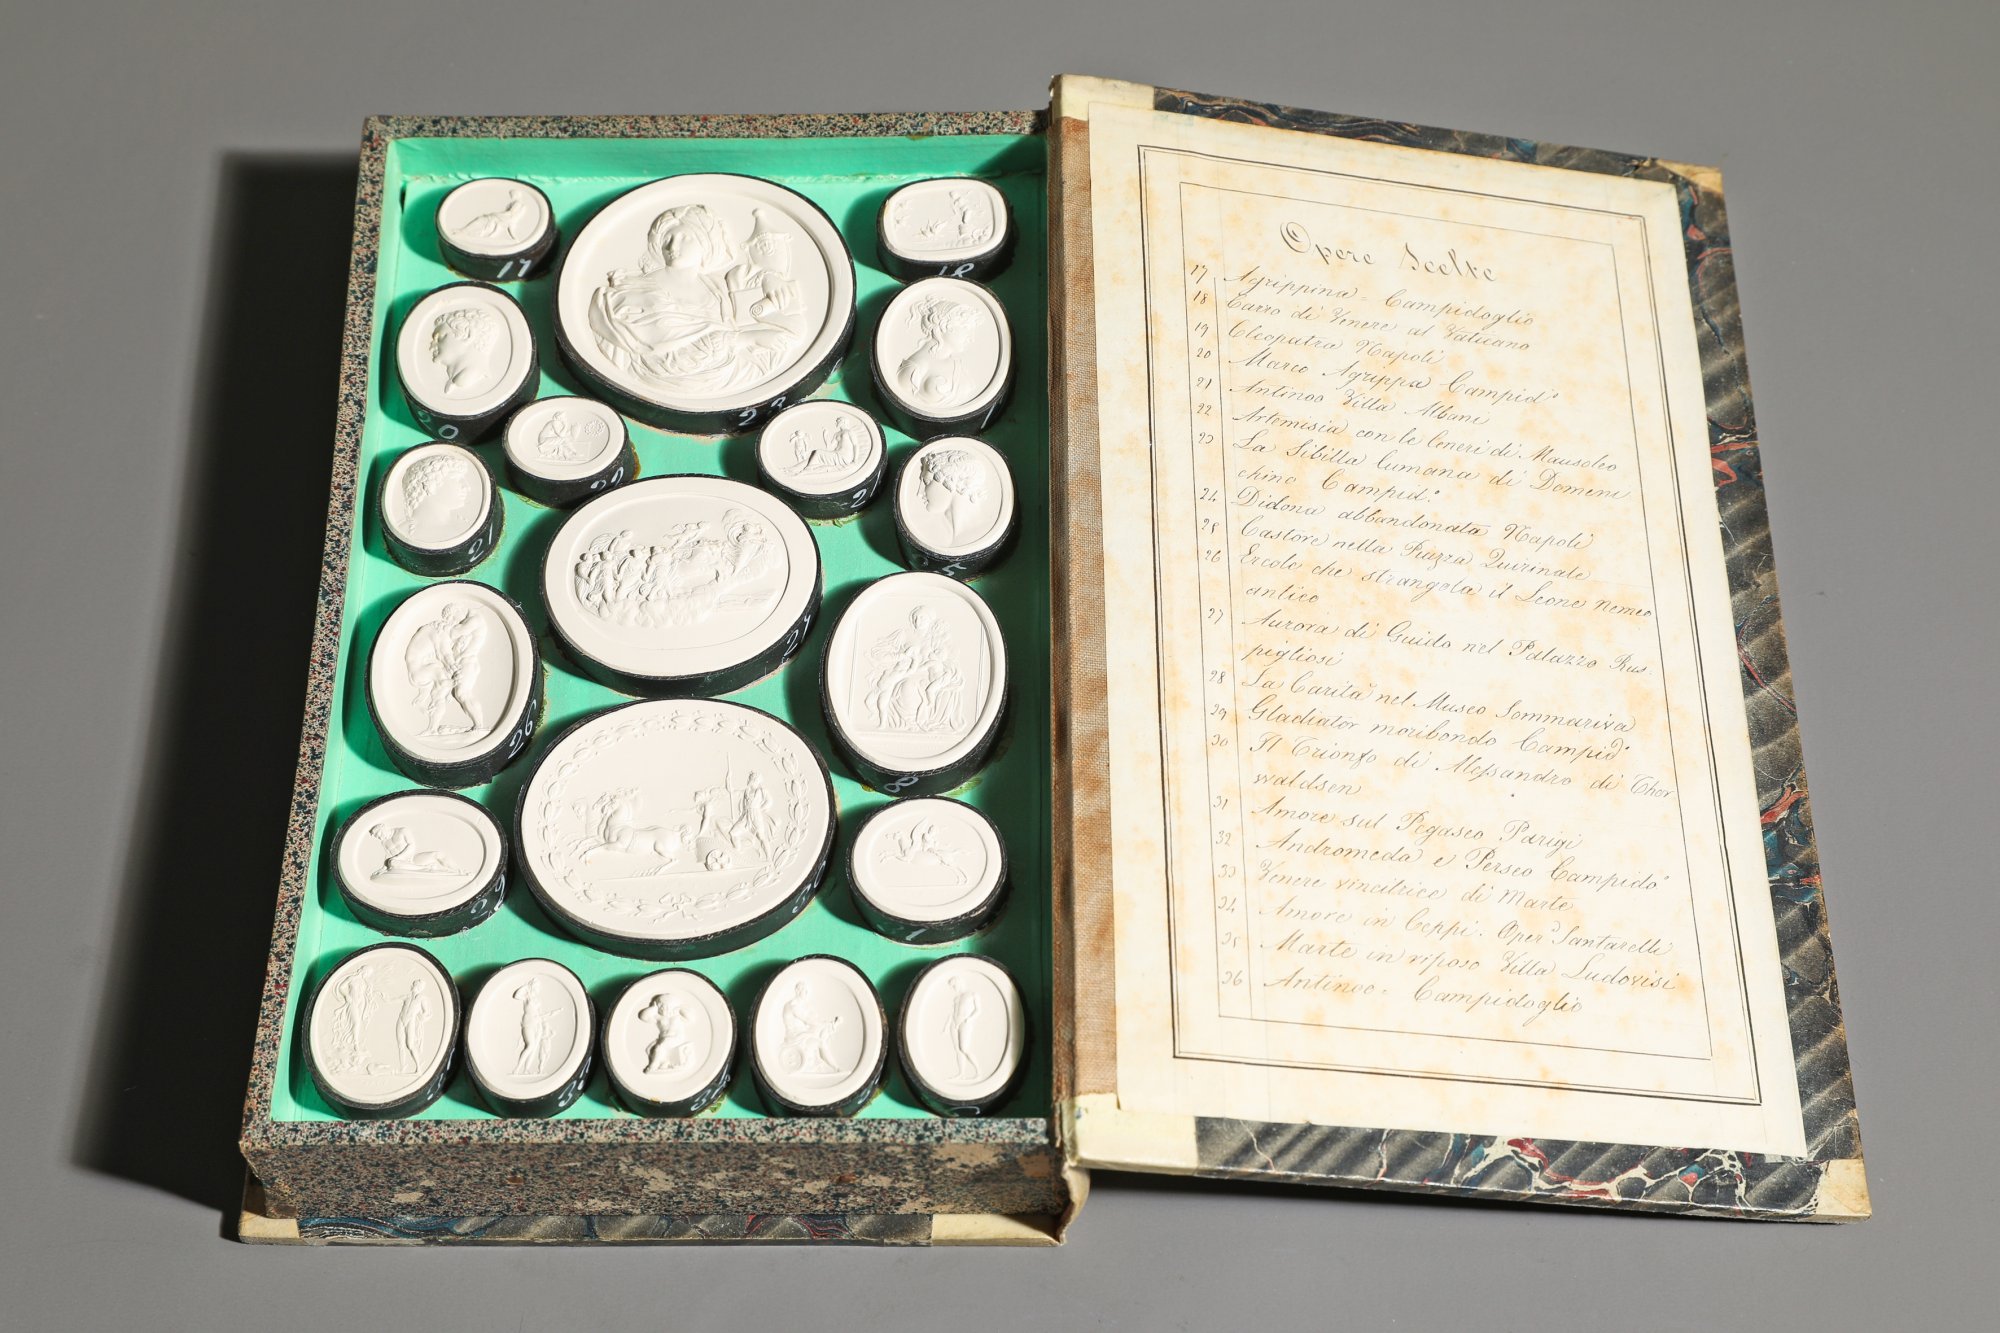 Opere Scelte
17 Agrippina = Campidoglio
18 Carro di Venere al Vaticano
19 Cleopatra Napoli
20 Marco Agrippa Campid.º
21 Antinoo Villa Albani
22 Artemisia con le Ceneri di Mausoleo
23 La Sibilla Cumana di Domeni
chino Campid.º
24 Didona abbandonata Napoli
25 Castore nella Piazza Quirinale
26 Ercole che strangola il Leone Nemeo
antico
27 Aurora di Guido nel Palazzo Rus-
pigliosi
28 La Carità nel Museo Sommariva
29 Gladiator moribondo Campid.º
30 Il Trionfo di Alessandro di Thor
waldsen
31 Amore sul Pegaseo Parigi
32 Andromeda e Perseo Campidº
33 Venere vincitrice di Marte
34 Amore in Ceppi. Operª Santarelli
35 Marte in riposo Villa Ludovisi
36 Antinoo = Campidoglio
17
18
20
23
22
21
26
29
30